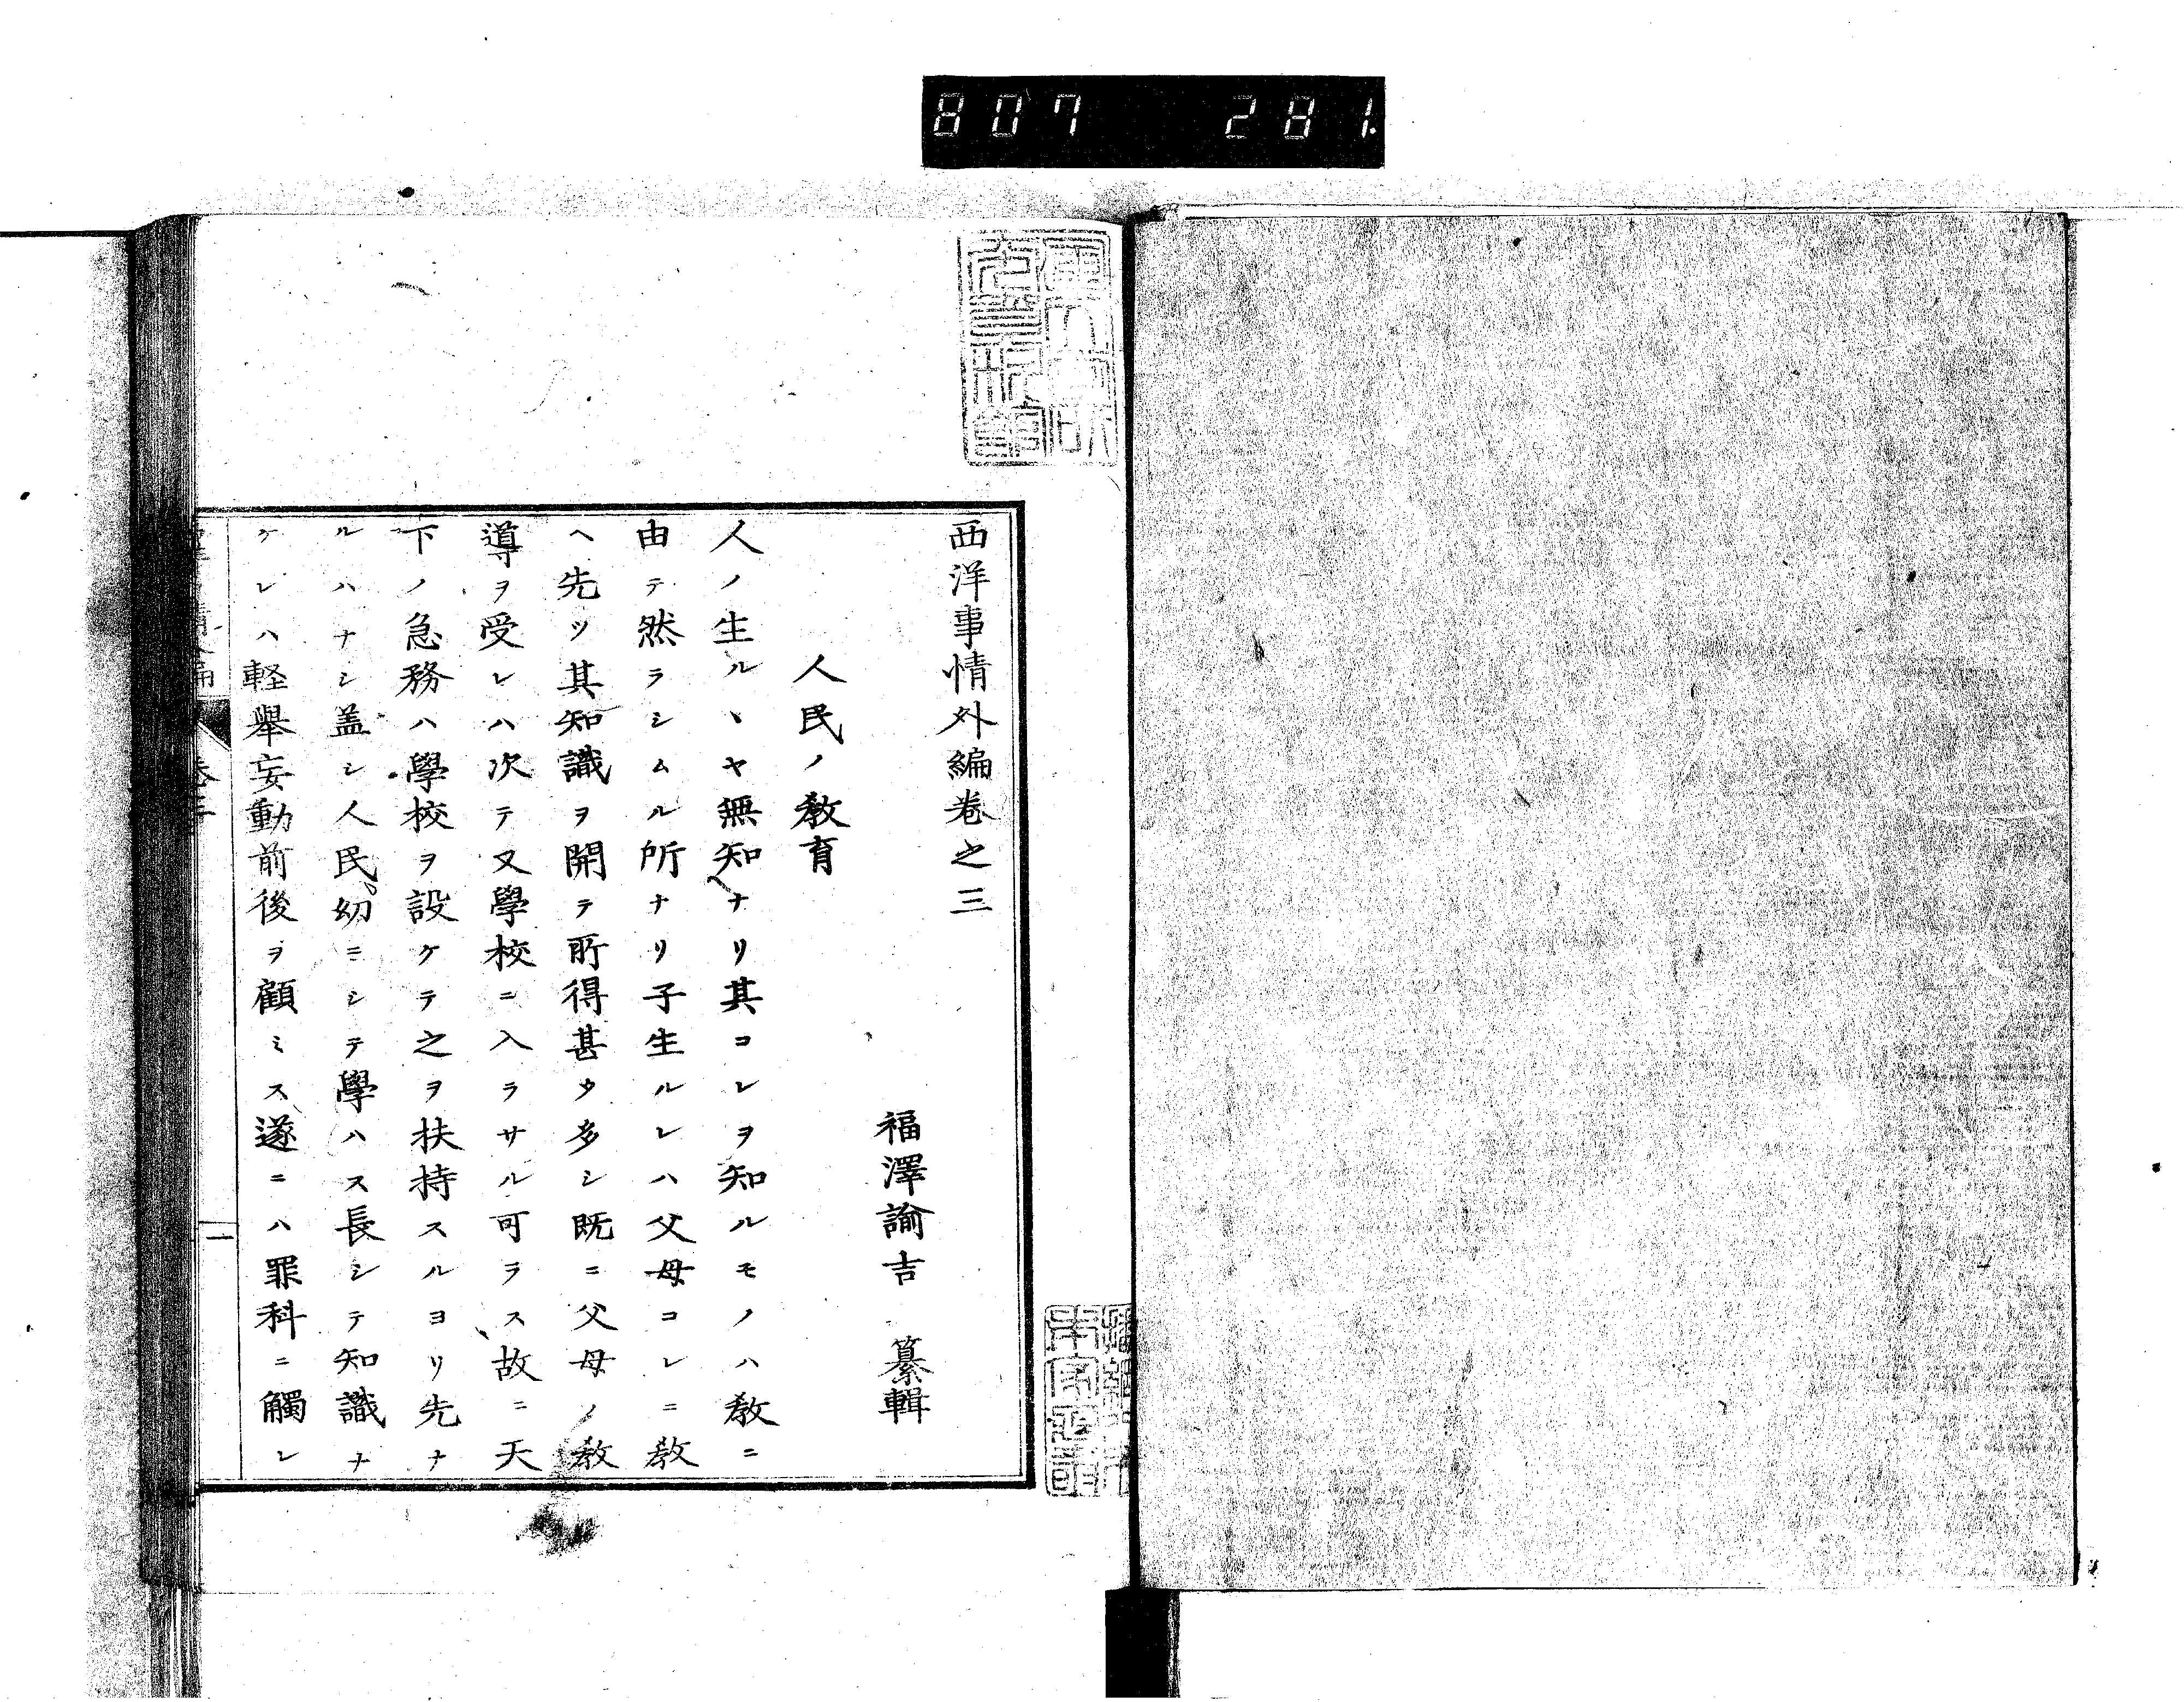 807 281
西洋事情外編卷之三
福澤諭吉 纂輯
人民ノ教育
人ノ生ルヽヤ無知ナリ其コレヲ知ルモノハ教ニ
由テ然ラシムル所ナリ子生ルレハ父母コレニ教
ヘ先ツ其知識ヲ開テ所得甚タ多シ既ニ父母ノ教
導ヲ受レハ次テ又學校ニ入ラサル可ラス故ニ天
下ノ急務ハ學校ヲ設ケテ之ヲ扶持スルヨリ先ナ
ルハナシ盖シ人民幼ニシテ學ハス長シテ知識ナ
ケレハ軽舉妄動前後ヲ顧ミス遂ニハ罪科ニ觸レ
卷三
一